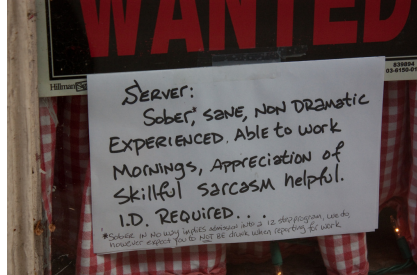 WANTED
Hillman
839894
Server:
Sober,* sane, non dramatic
Experienced. Able to work
Mornings, Appreciation of
Skillful sarcasm helpful.
I.D. Required...
*Sober in no way implies admission into a 12 step program, we do,
however expect you to NOT be drunk when reporting for work